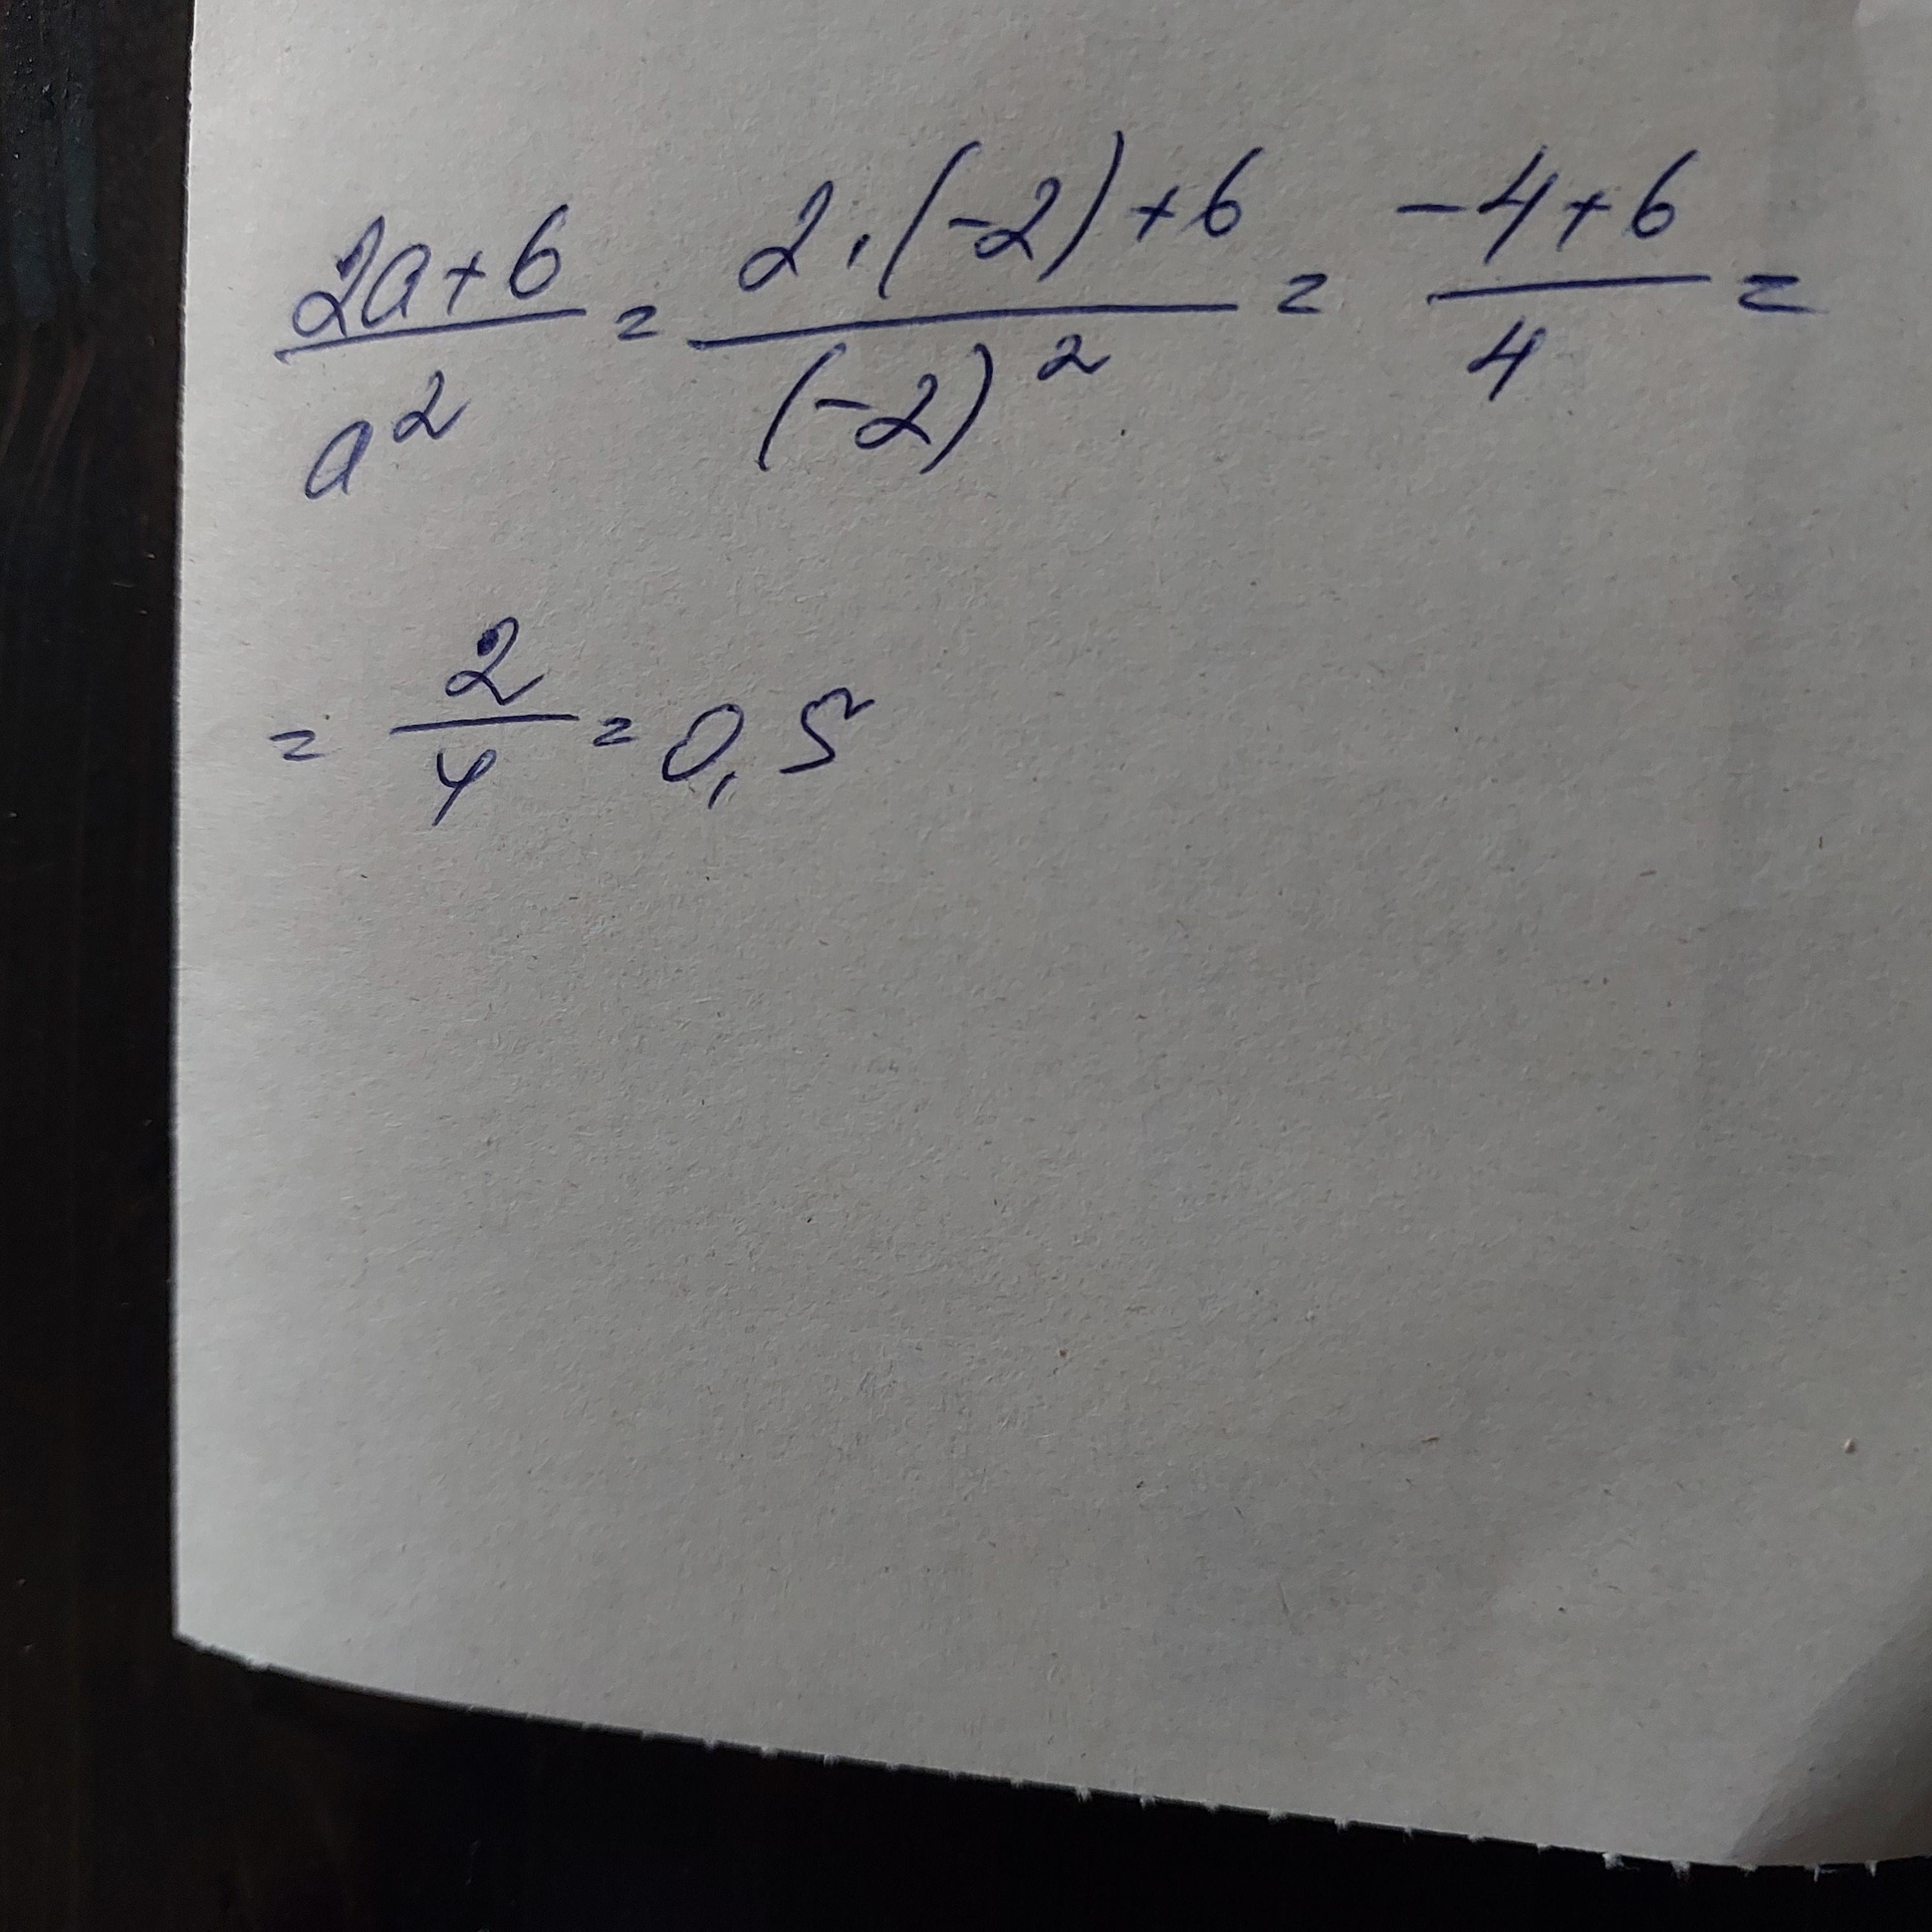 (2a+6)/a² = (2·(-2)+6)/(-2)² = (-4+6)/4 =
= 2/4 = 0,5